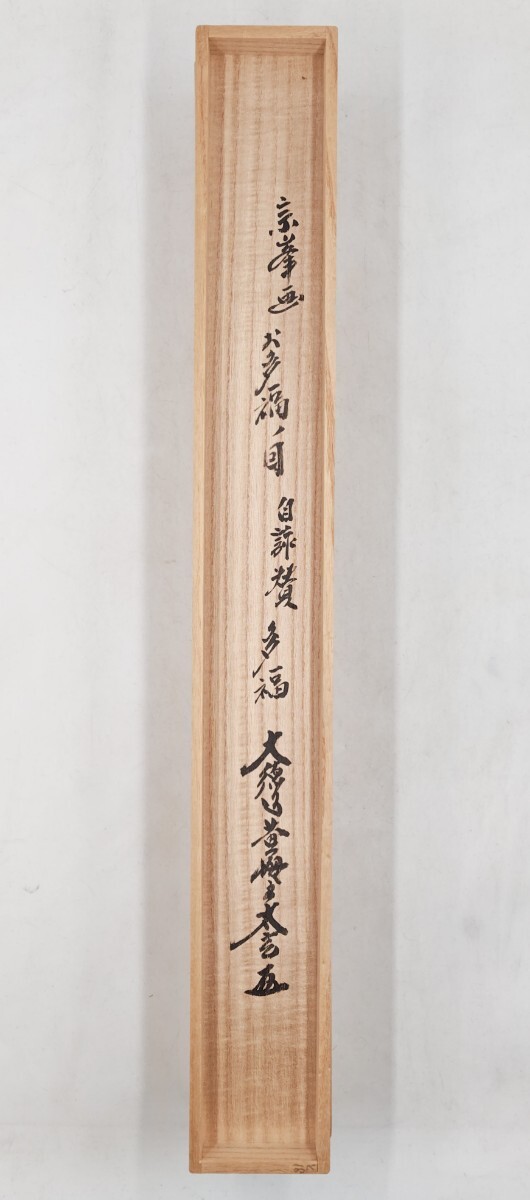 宗峯画 お多福ノ図 自詠賛 多福 大徳寺黄梅院太玄